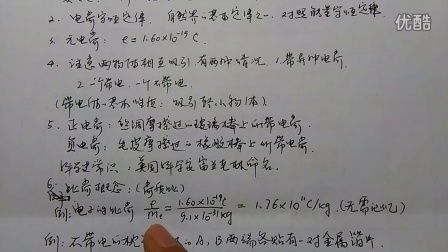 YOUKU 优酷
2. 电荷守恒定律. 自然界の基本定律之一. 对照能量守恒定律
3. 元电荷: e=1.60×10⁻¹⁹C.
4. 注意两物体相互吸引有两种情况. 1. 带异种电荷
2. 一个带电. 一个不带电
(带电体の基本性质: 吸引轻小物体)
5. 正电荷: 丝绸摩擦过の玻璃棒上所带电荷.
负电荷: 毛皮摩擦过の橡胶棒上所带电荷.
科学史常识: 美国科学家富兰克林命名
6. 比荷概念: (荷质比)
例: 电子の比荷 e/mₑ = 1.60×10⁻¹⁹C/9.1×10⁻³¹kg = 1.76×10¹¹C/kg (无需记忆)
例: 不带电の枕 A, B两端各贴有一对金属箔片.